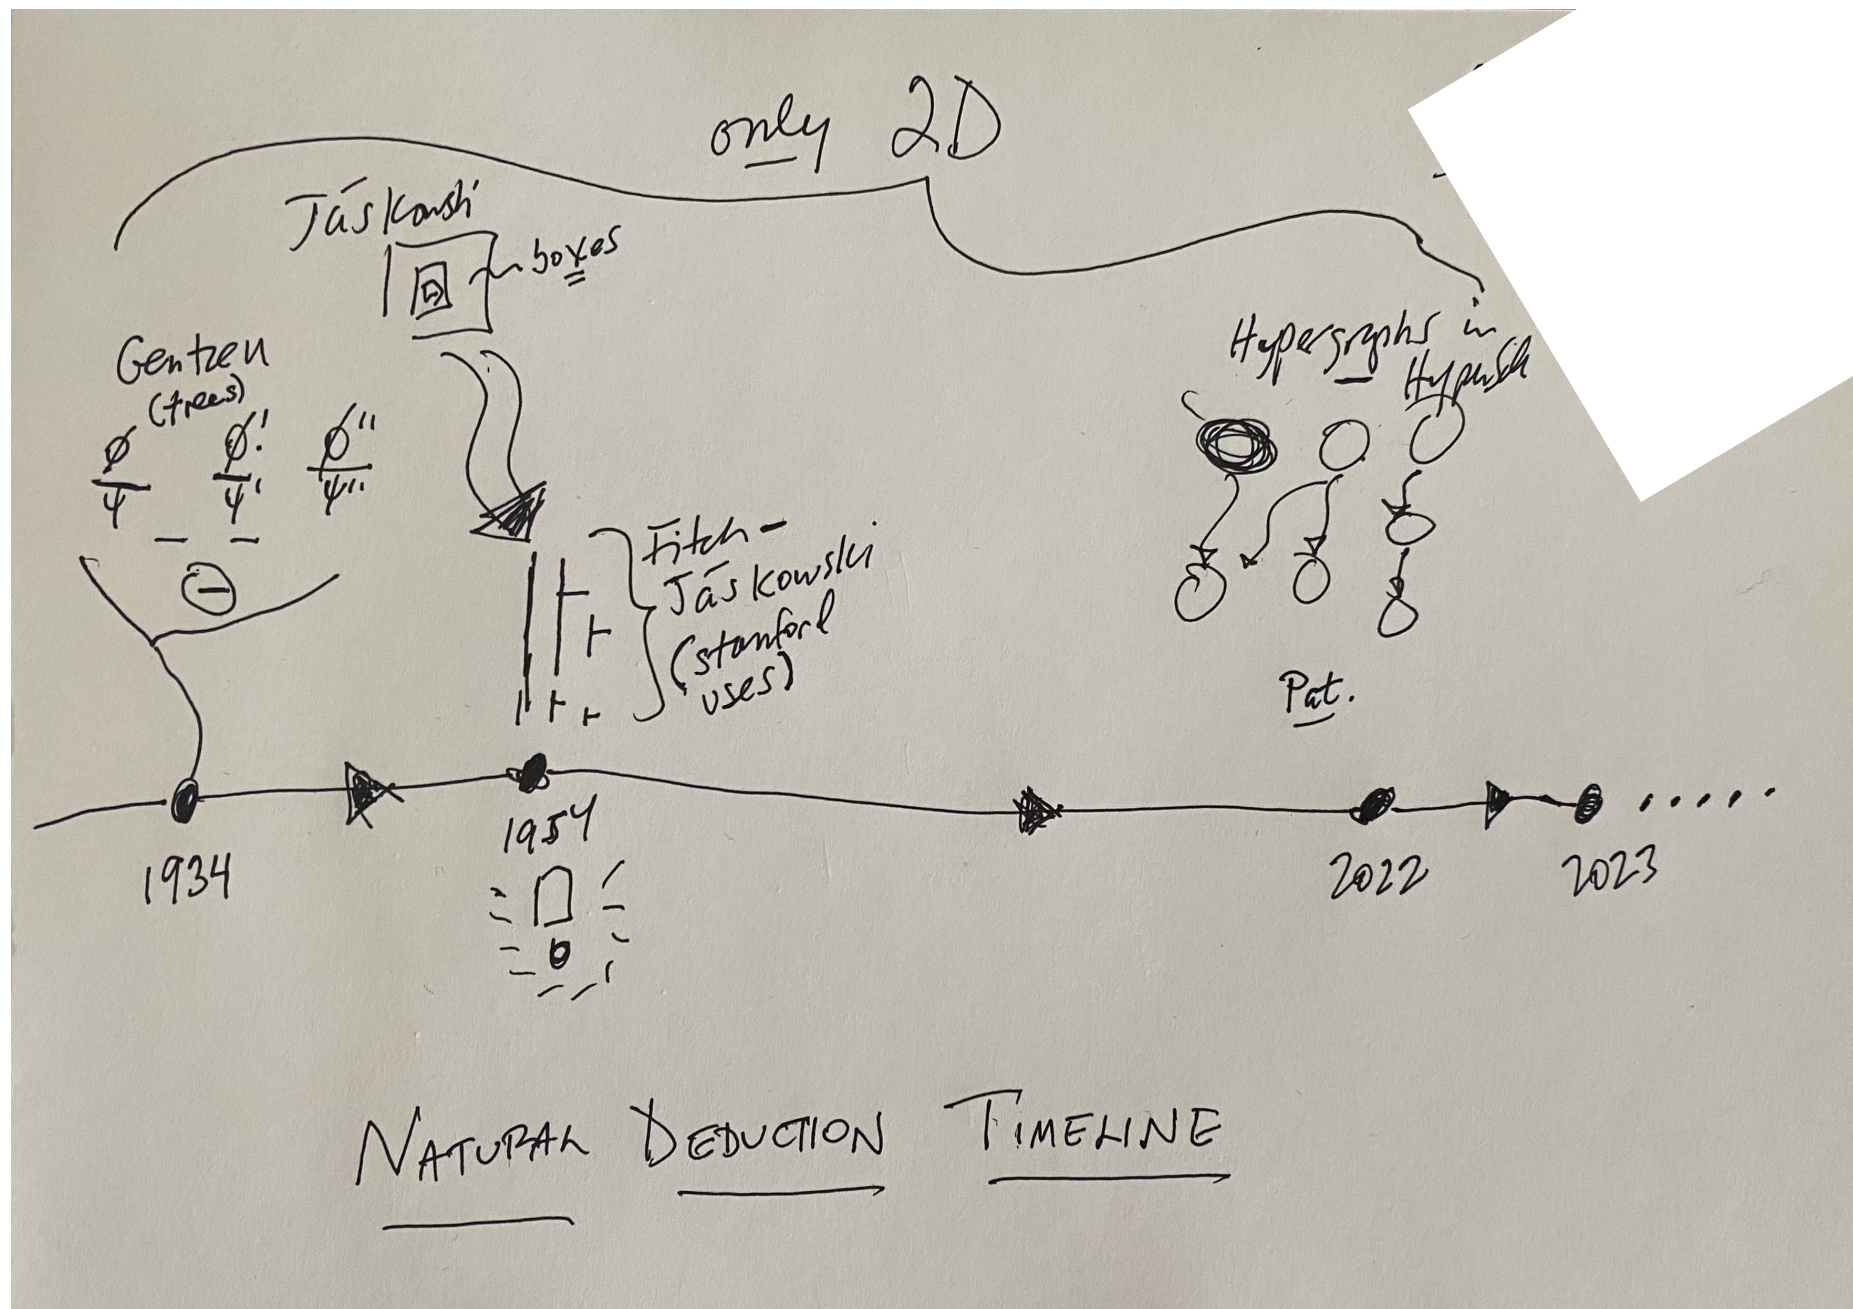 only 2D
Jáskowski
boxes
Gentzen
(trees)
φ φ' φ''
ψ ψ' ψ''
Fitch-
Jáskowski
(stanford
uses)
Hypergraphs in
Pat.
1934
1954
2022
2023
NATURAL DEDUCTION TIMELINE